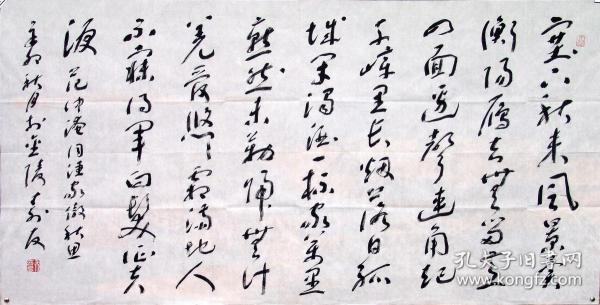 塞下秋来風景異
衡陽雁去無留意
四面邊聲連角起
千嶂里長烟落日孤
城閉濁酒一杯家萬里
燕然未勒歸無計
羌管悠悠霜滿地人
不寐將軍白髮征夫
淚 范仲淹词漁家傲秋思
辛卯秋月於金陵
孔夫子旧书网